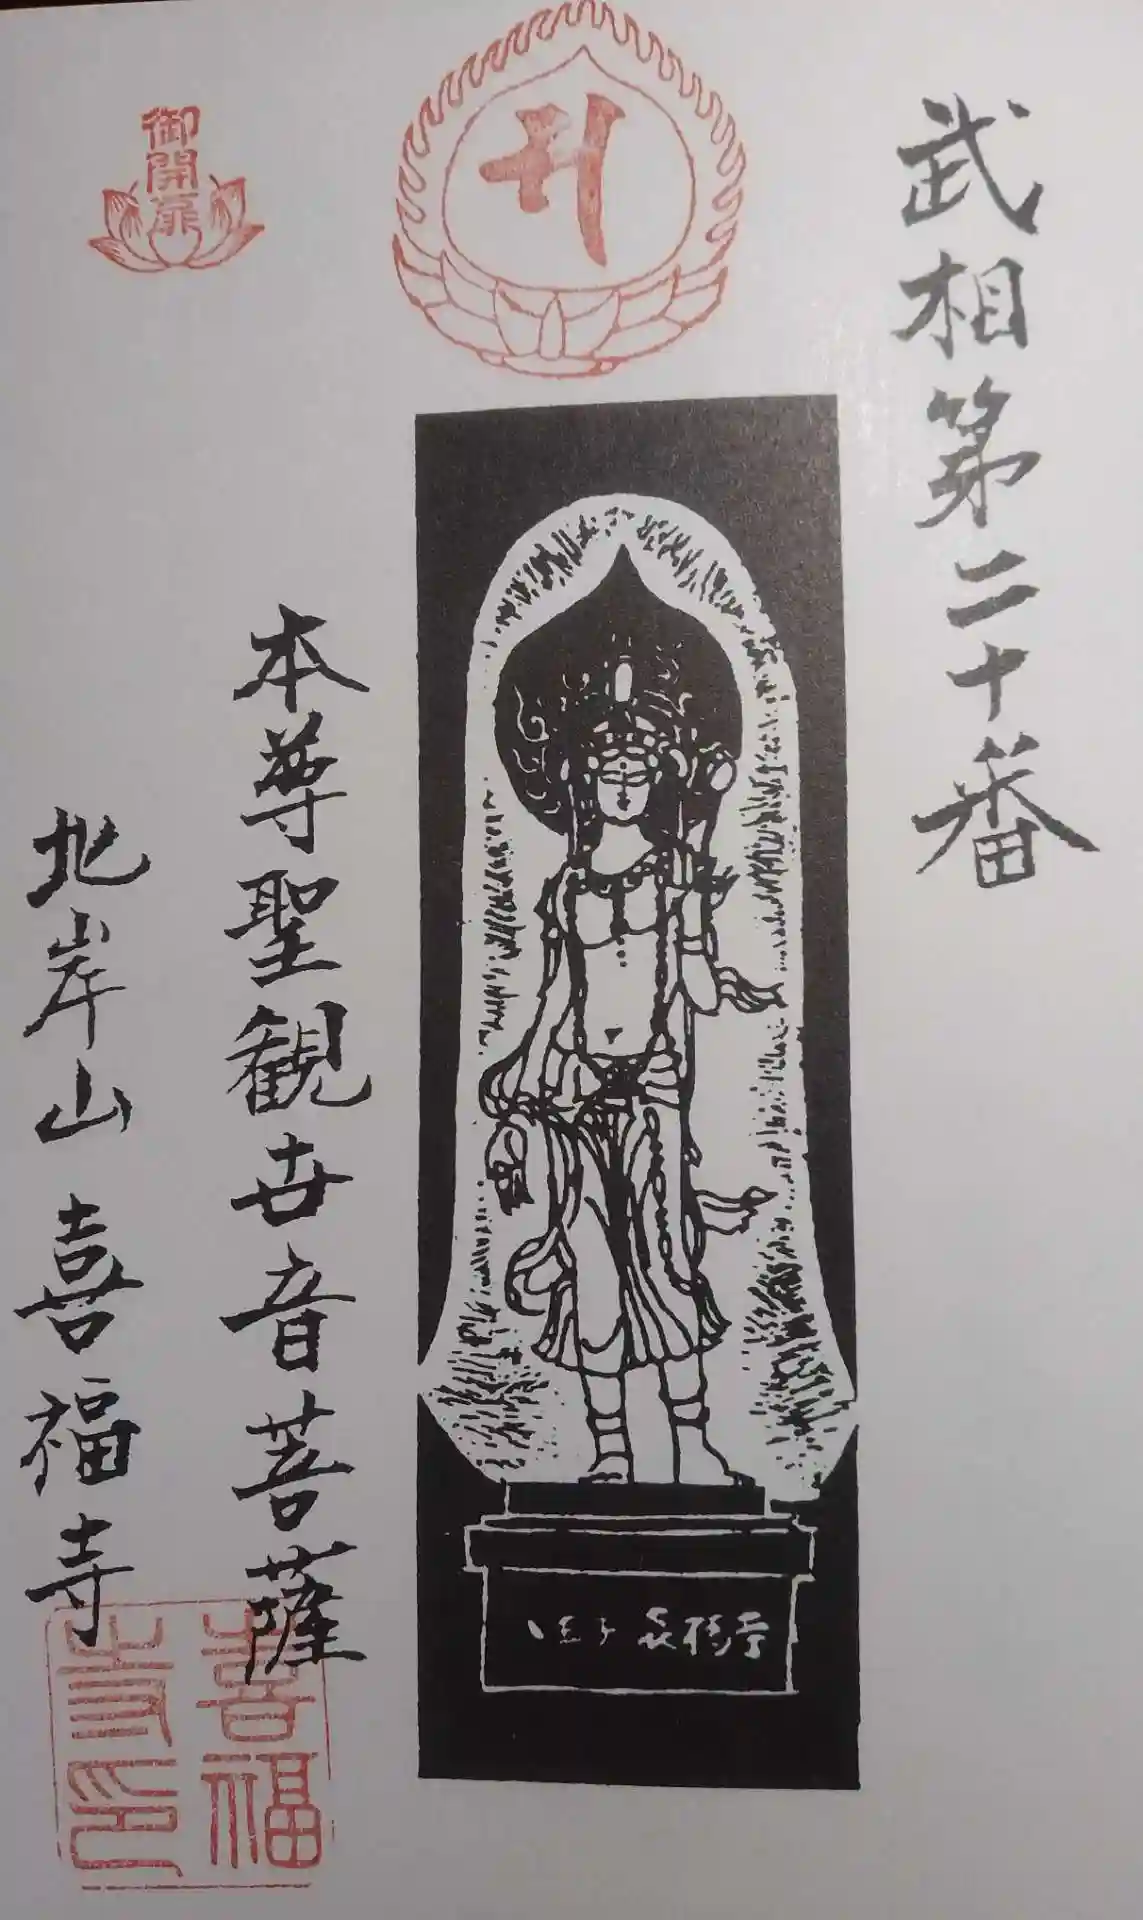 武相第二十番
サ
御開扉
本尊聖観世音菩薩
地岸山 喜福寺
喜福寺印